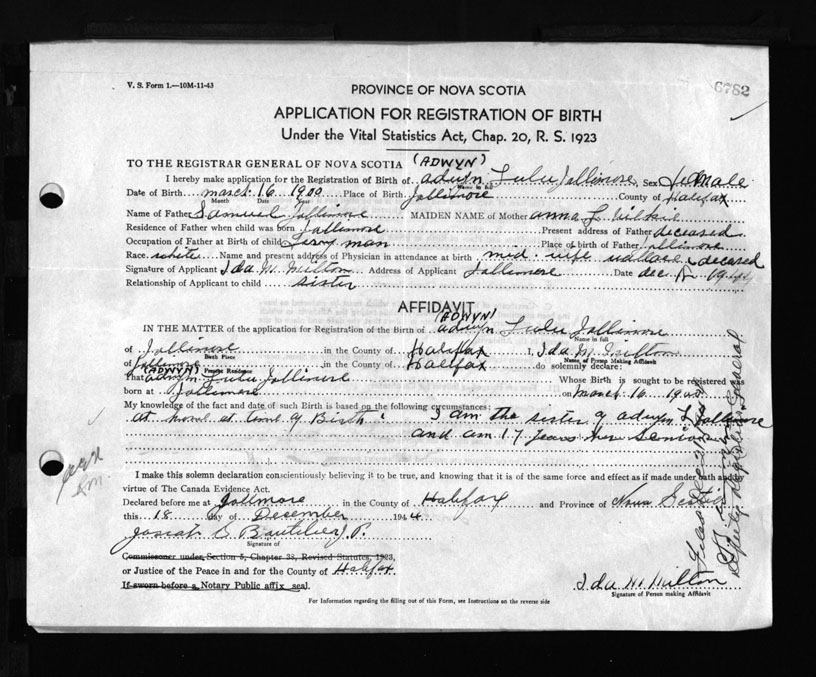 V. S. Form 1.—10M-11-43
6782
PROVINCE OF NOVA SCOTIA
APPLICATION FOR REGISTRATION OF BIRTH
Under the Vital Statistics Act, Chap. 20, R. S. 1923
TO THE REGISTRAR GENERAL OF NOVA SCOTIA (ADWYN)
I hereby make application for the Registration of Birth of adwyn Lulu Jollimore Sex Female
Name in full
Date of Birth march 16 1900 Place of Birth Jollimore County of Halifax
Month Date Year
Name of Father Samuel Jollimore MAIDEN NAME of Mother anna L.
Residence of Father when child was born Jollimore Present address of Father deceased
Occupation of Father at Birth of child man Place of birth of Father Jollimore
Race white Name and present address of Physician in attendance at birth mid. wife deceased
Signature of Applicant Ida M. Milton Address of Applicant Jollimore Date dec 18 1944
Relationship of Applicant to child sister
AFFIDAVIT
(ADWYN)
IN THE MATTER of the application for Registration of the Birth of adwyn Lulu Jollimore
Name in full
of Jollimore in the County of Halifax I, Ida M. Milton
Birth Place Name of Person Making Affidavit
of Jollimore in the County of Halifax do solemnly declare:
(ADWYN) Present Residence
That adwyn Lulu Jollimore Whose Birth is sought to be registered was
born at Jollimore on March 16 1900
My knowledge of the fact and date of such Birth is based on the following circumstances:
at home at time of Birth. I am the sister of adwyn L Jollimore
and am 17 years her senior
I make this solemn declaration conscientiously believing it to be true, and knowing that it is of the same force and effect as if made under oath and by
virtue of The Canada Evidence Act.
Declared before me at Jollimore in the County of Halifax and Province of Nova Scotia
this 18 day of December 1944
Josiah E Boutilier J.P.
Signature of
Commissoner under Section 5, Chapter 38, Revised Statutes, 1923,
or Justice of the Peace in and for the County of Halifax
If sworn before a Notary Public affix seal.
Ida M. Milton
Signature of Person making Affidavit
For Information regarding the filling out of this Form, see Instructions on the reverse side
Deputy Registrar General